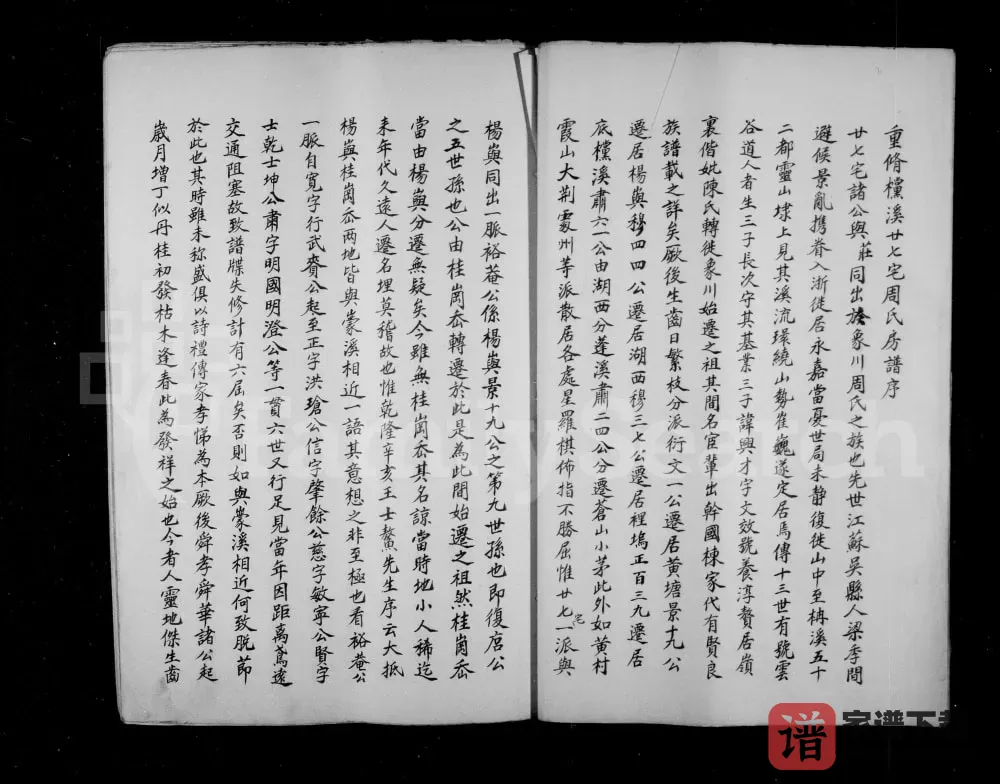 重脩檬溪廿七宅周氏房譜序
廿七宅諸公與莊同出於象川周氏之族也先世江蘇吳縣人梁季間
避候景亂携眷入浙徙居永嘉當憂世局未静復徙山中至柟溪五十
二都靈山埭上見其溪流環繞山勢崔巍遂定居焉傳十三世有號雲
谷道人者生三子長次守其基業三子諱興才字文效號養淳贅居嶺
裏偕妣陳氏轉徙象川始遷之祖其間名宦輩出幹國棟家代有賢良
族譜載之詳矣厥後生齒日繁枝分派衍文一公遷居黄塘景十九公
遷居楊㠘穆四四公遷居湖西穆三七公遷居裡塢正百三九遷居
底檬溪肅六一公由湖西分蓬溪肅二四公分遷蒼山小茅此外如黄村
霞山大荆霥州等派散居各處星羅棋佈指不勝屈惟廿七宅一派與
楊㠘同出一脈裕菴公係楊㠘景十九公之第九世孫也即復㡳公
之五世孫也公由桂崗岙轉遷於此是為此間始遷之祖然桂崗岙
當由楊㠘分遷無疑矣今雖無桂崗岙其名諒當時地小人稀迄
来年代久遠人遷名埋莫稽故也惟乾隆辛亥王士鰲先生序云大抵
楊㠘與桂崗岙兩地皆與霥溪相近一語其意想之非至極也看裕菴公
一脈自寬字行武賚公起至正字洪瑲公信字肇餘公慈字敏寧公賢字
士乾士坤公肅字明國明澄公等一貫六世又行足見當年因距萬鳶遠
交通阻塞故致譜牒失修計有六屆矣否則如與霥溪相近何致脱節
於此也其時雖未称盛俱以詩禮傳家孝悌為本厥後舜孝舜華諸公起
歲月增丁似丹桂初發枯木逢春此為發祥之始也今者人靈地傑生齒
FamilySearch
谱
家谱下载